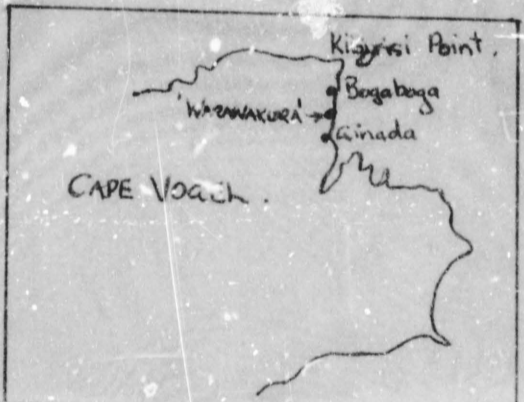 Kigirisi Point.
Bogaboga
'WARAWAKURA'
Ginada
CAPE VOGEL.